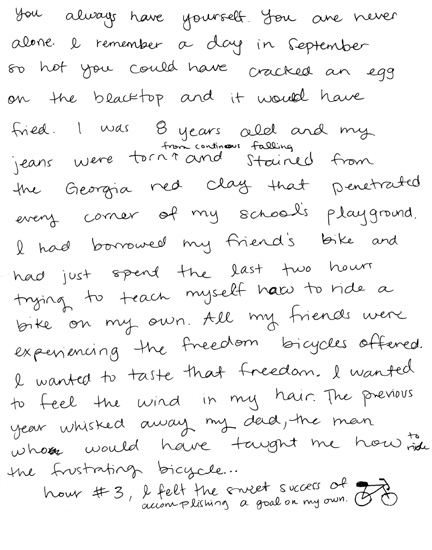 You always have yourself. You are never
alone. I remember a day in September
so hot you could have cracked an egg
on the blacktop and it would have
fried. I was 8 years old and my
from continuous falling
jeans were torn↑ and stained from
the Georgia red clay that penetrated
every corner of my school's playground.
I had borrowed my friend's bike and
had just spent the last two hours
trying to teach myself how to ride a
bike on my own. All my friends were
experiencing the freedom bicycles offered.
I wanted to taste that freedom. I wanted
to feel the wind in my hair. The previous
year whisked away my dad, the man
who would have taught me how to ride
the frustrating bicycle...
hour #3, I felt the sweet success of
accomplishing a goal on my own.